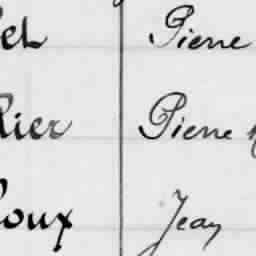 el Pierre
rier Pierre
oux Jean